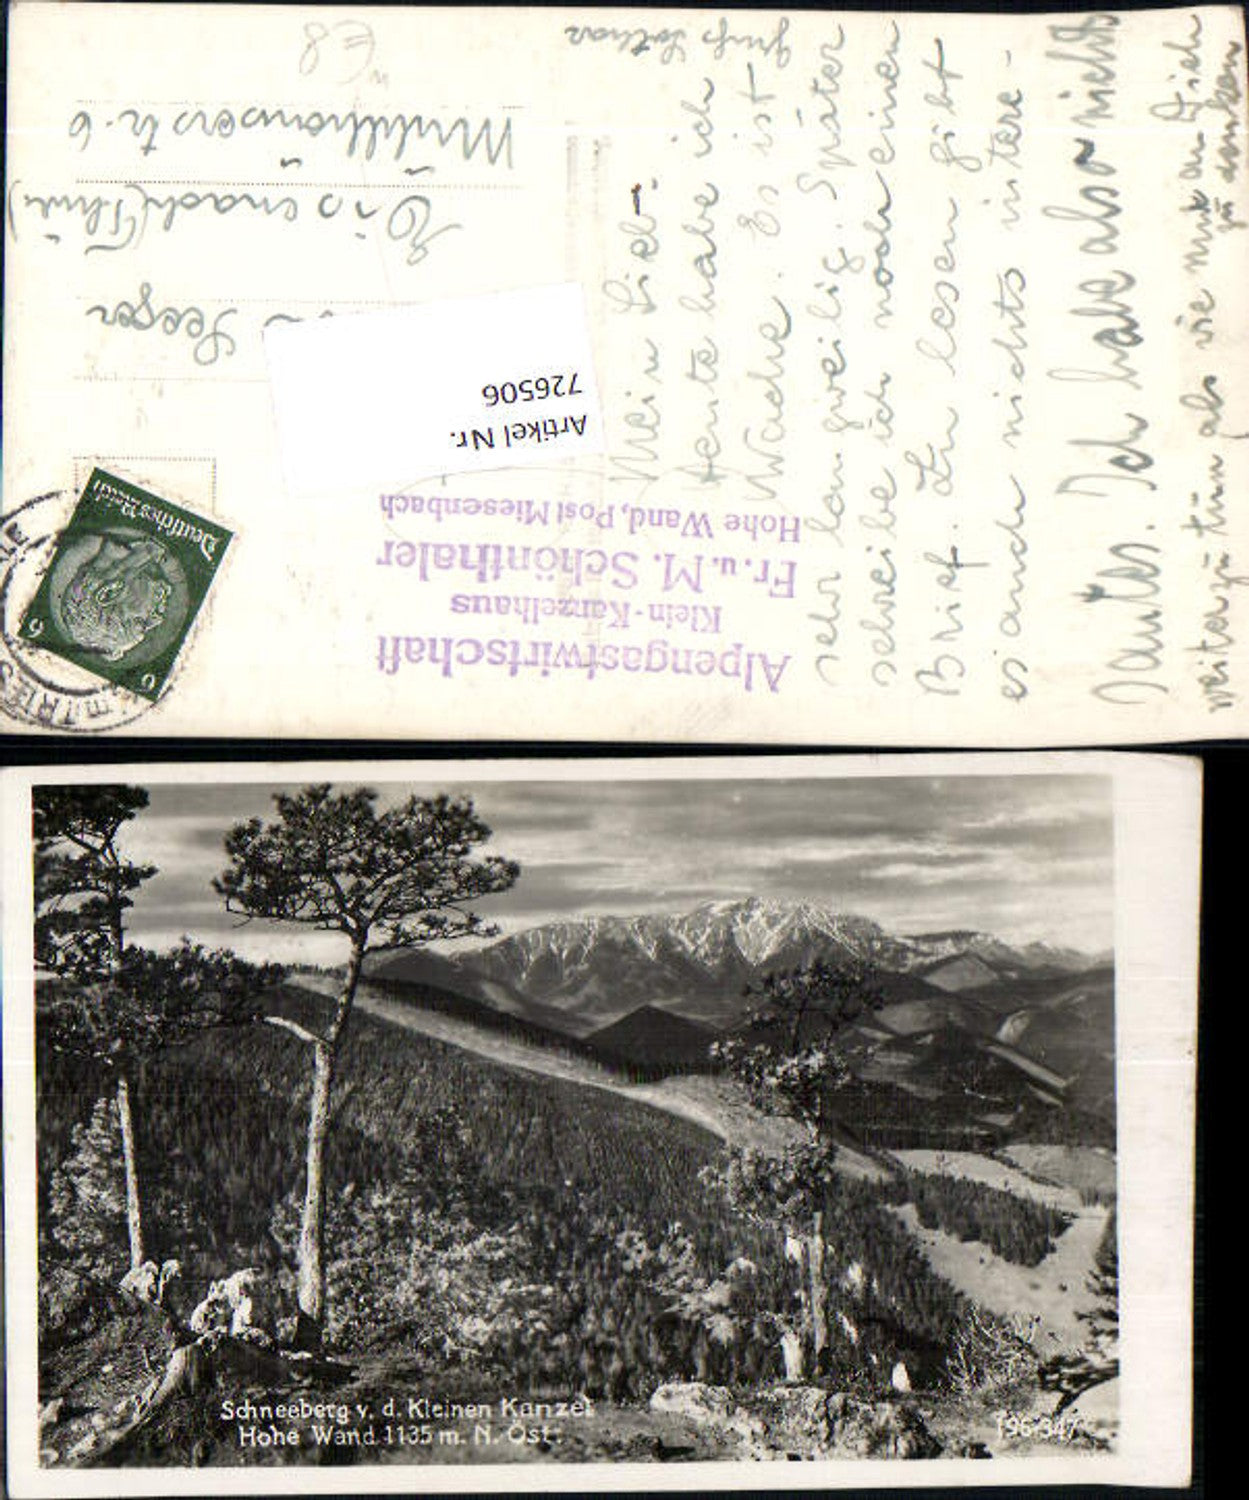 Mein Lieb-
Heute habe ich
Wache. Es ist
sehr langweilig. Später
schreibe ich noch einen
Brief. Zu lesen gibt
es auch nichts intere-
Ich habe also nichts
weiter zu tun als wie nur an Dich
zu denken
Gruß Lothar
Alpengastwirtschaft
Klein-Kanzelhaus
Fr. u. M. Schönthaler
Hohe Wand, Post Miesenbach
Artikel Nr.
726506
Deutsches Reich
6 6
TRIES
Seeger
Eisenach (Thür)
Mühlhäuserstr. 6
€8
Schneeberg v. d. Kleinen Kanzel
Hohe Wand 1135 m. N. Öst.
196-347